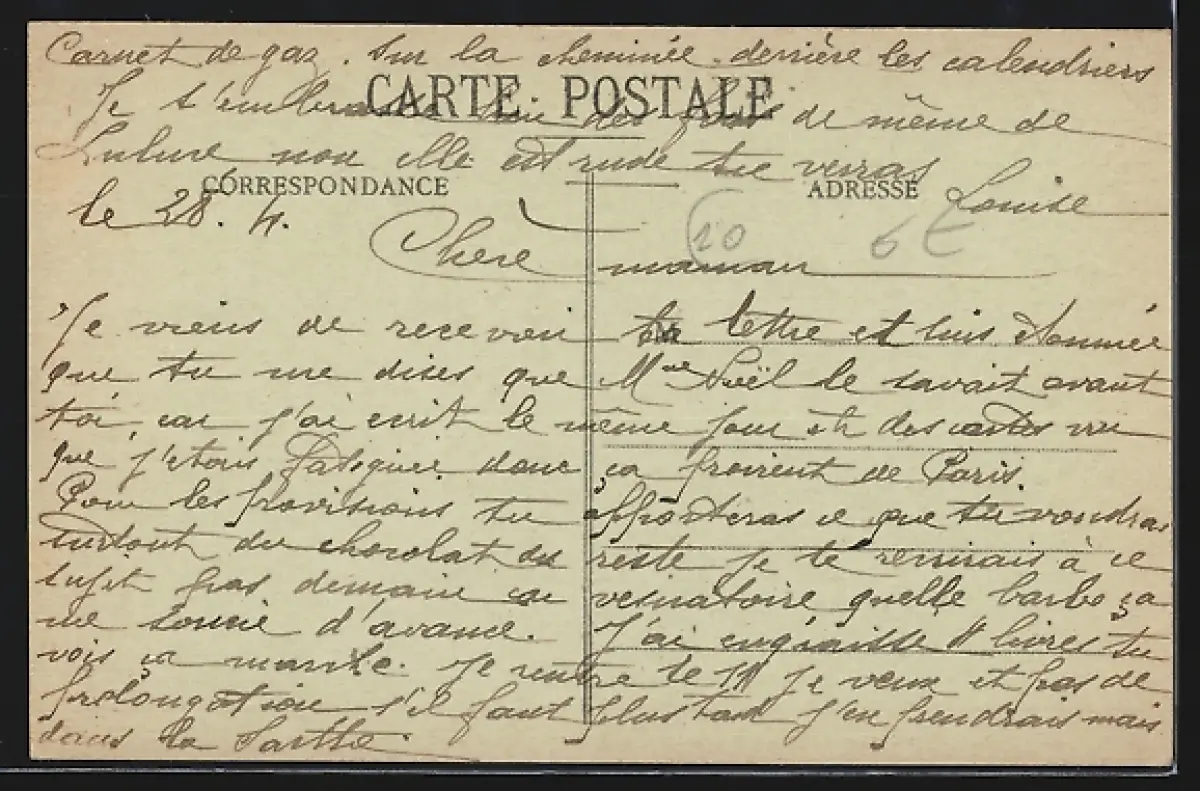 Carnet de gaz. Sur la cheminée derrière les calendriers
CARTE POSTALE
Je t'embrasse bien des fois de même de
Lulure non elle est rude tu verras
CORRESPONDANCE
ADRESSE
Louise
le 28. 4.
20
6€
Chère maman
Je viens de recevoir ta lettre et suis étonnée
que tu me dises que Mme Noël le savait avant
toi, car j'ai écrit le même jour et des cartes vu
que j'étais fatiguée donc ça provient de Paris.
Pour les provisions tu apporteras ce que tu voudras
surtout du chocolat du reste je te récrirais à ce
sujet pas demain car vésicatoire quelle barbe ça
me soucie d'avance. J'ai engraissé 4 livres tu
vois ça marche. Je rentre le 11 je veux et pas de
prolongation s'il faut plus tard j'en prendrais mais
dans la Sarthe.